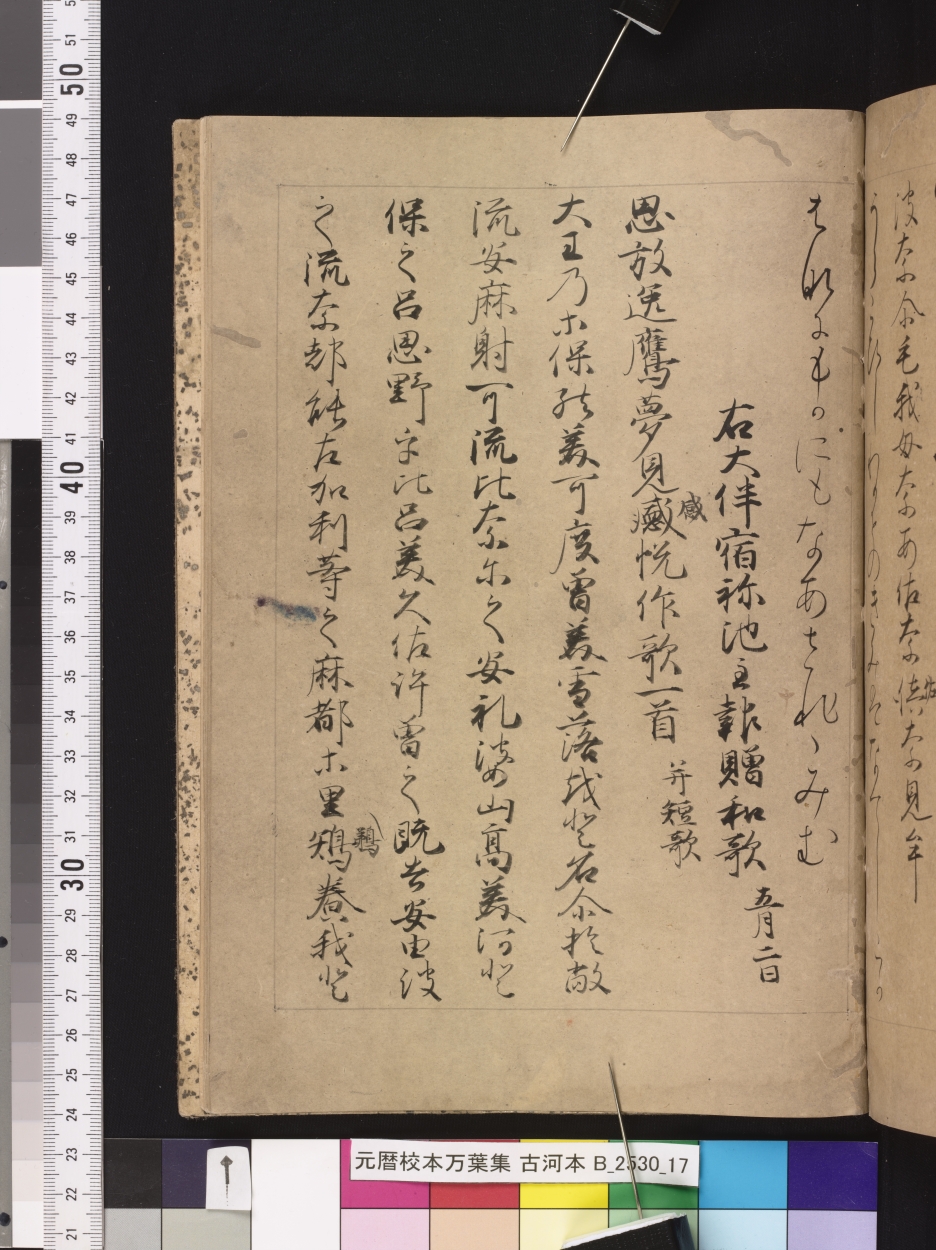 波奈尓毛我母奈安佐奈佐奈見牟
はなにもかにもなあさなゝみむ
右大伴宿祢池主報贈和歌 五月二日
思放逸鷹夢見感悦作歌一首 并短歌
感
大王乃等保能美可度曽美雪落越登名尓於敝
流安麻射可流比奈尓之安礼婆山高美河登
保之呂思野乎比呂美久佐許曽之既吉安由波
之流奈都能左加利等之麻都等里鵜養我登
鵜
元暦校本万葉集 古河本 B_2530_17